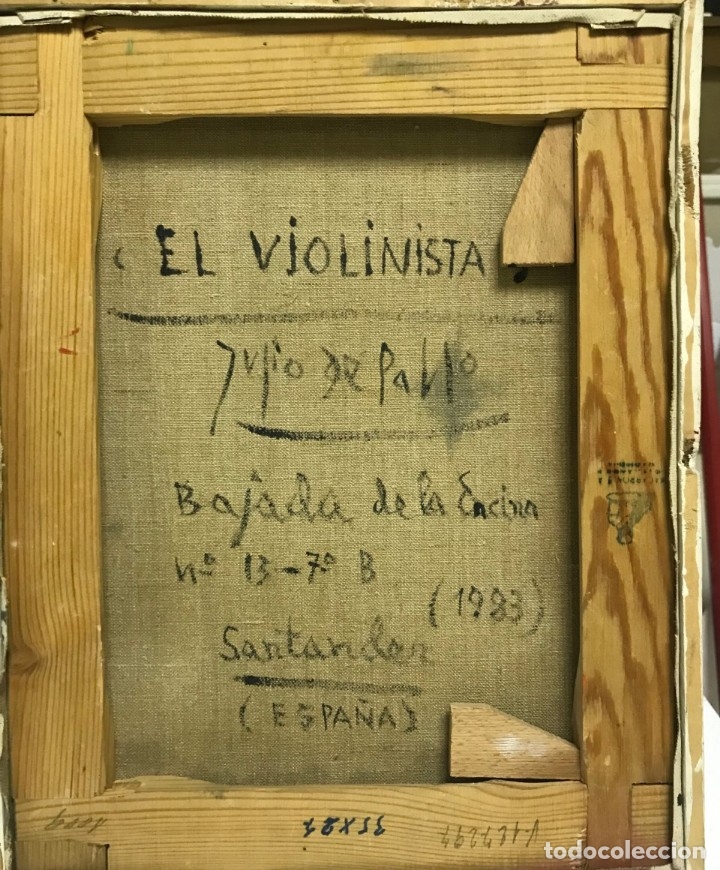 « EL VIOLINISTA »
Julio DE Pablo
Bajada de la Encina
nº 13 - 7º B
(1983)
Santander
(ESPAÑA)
35 X 27
todocoleccion